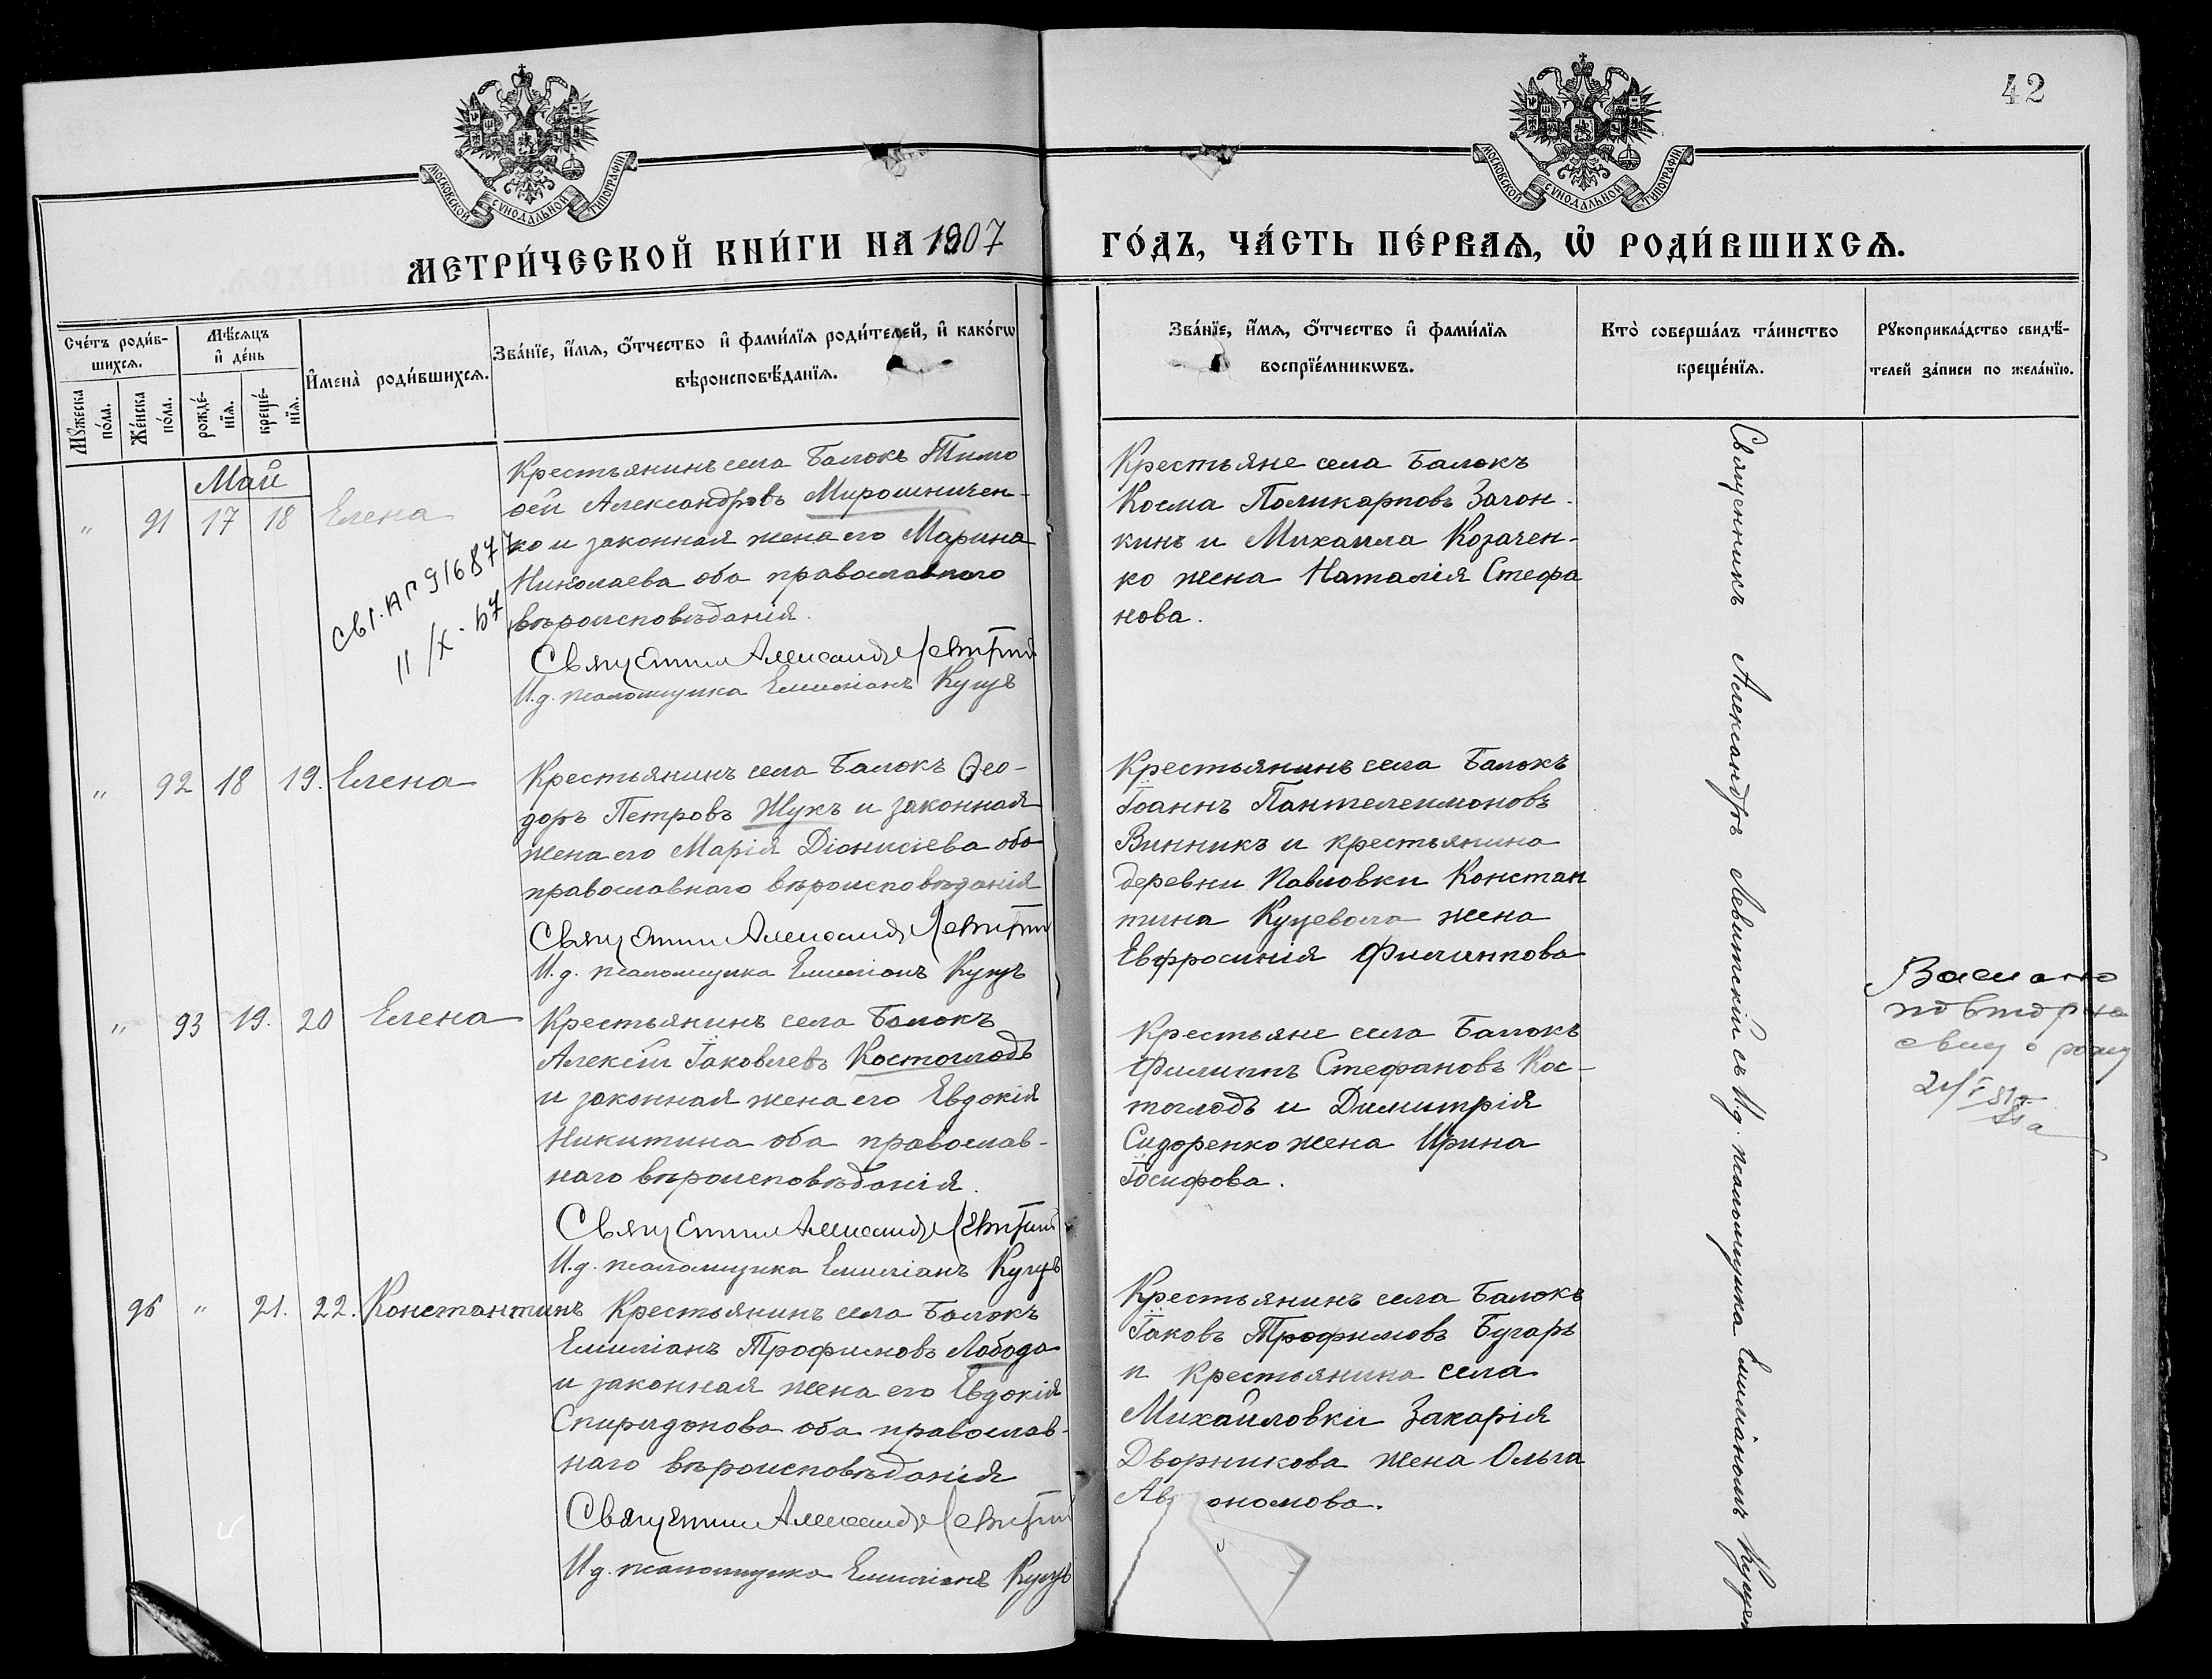 42
МОСКОВСКОЙ СУНОДАЛЬНОЙ ТИПОГРАФІИ
МОСКОВСКОЙ СУНОДАЛЬНОЙ ТИПОГРАФІИ
МЕТРИ́ЧЕСКОЙ КНИ́ГИ НА 1907
ГО́ДЪ, ЧА́СТЬ ПЕ́РВАѦ, Ѡ҆ РОДИ́ВШИХСѦ.
Сче́тъ роди́в-
шихсѧ.
Мꙋ́жеска
по́ла.
Же́нска
по́ла.
Мѣ́сѧцъ
и҆ де́нь
рожде́-
нїѧ.
креще́-
нїѧ.
И҆мена̀ роди́вшихсѧ.
Зва́нїе, и҆́мѧ, ѻ҆́тчество и҆ фами́лїѧ роди́телей, и҆ како́гѡ
вѣроисповѣ́данїѧ.
Зва́нїе, и҆́мѧ, ѻ҆́тчество и҆ фами́лїѧ
воспрїе́мникѡвъ.
Кто̀ соверша́лъ та́инство
креще́нїѧ.
Рꙋкоприкла́дство свидѣ́-
телей за́писи по жела́нїю.
Май
" 91 17 18 Елена
Крестьянинъ села Балокъ Тимо
ѳей Александровъ Мирошничен-
ко и законная жена его Марина
Николаева оба православного
вѣроисповѣданія.
Александр Левитский
И.д. псаломщика Емиліанъ Куцъ
11/X-67
Крестьяне села Балокъ
Косма Поликарповъ Загон-
кинъ и Михаила Козачен-
ко жена Наталія Стефа
нова.
" 92 18 19. Елена
Крестьянинъ села Балокъ Ѳео-
доръ Петровъ Жукъ и законная
жена его Марія Діонисіева оба
православнаго вѣроисповѣданія
Александр Левитский
И.д. псаломщика Емиліанъ Куцъ
Крестьянинъ села Балокъ
Іоаннъ Пантелеимоновъ
Винникъ и крестьянина
деревни Павловки Констан
тина Куцевола жена
Евфросинія Филиппова
" 93 19. 20 Елена
Крестьянинъ села Балокъ
Алексій Іаковлевъ Костоглодъ
и законная жена его Евдокія
Никитина оба православ-
наго вѣроисповѣданія.
Александр Левитский
И.д. псаломщика Емиліанъ Куцъ
Крестьяне села Балокъ
Филиппъ Стефановъ Кос-
тоглодъ и Димитрія
Сидоренко жена Ирина
Іосифова.
повторна
свид о рожд
96 " 21. 22. Константинъ
Крестьянинъ села Балокъ
Емиліанъ Трофимовъ Лобода
и законная жена его Евдокія
Спиридонова оба православ-
наго вѣроисповѣданія
Александр Левитский
И.д. псаломщика Емиліанъ Куцъ
Крестьянинъ села Балокъ
Іаковъ Трофимовъ Бугарь
и крестьянина села
Михайловки Захарія
Дворникова жена Ольга
Ав ономова.
Священникъ Александръ Левитскій съ И.д. псаломщика Емиліаномъ